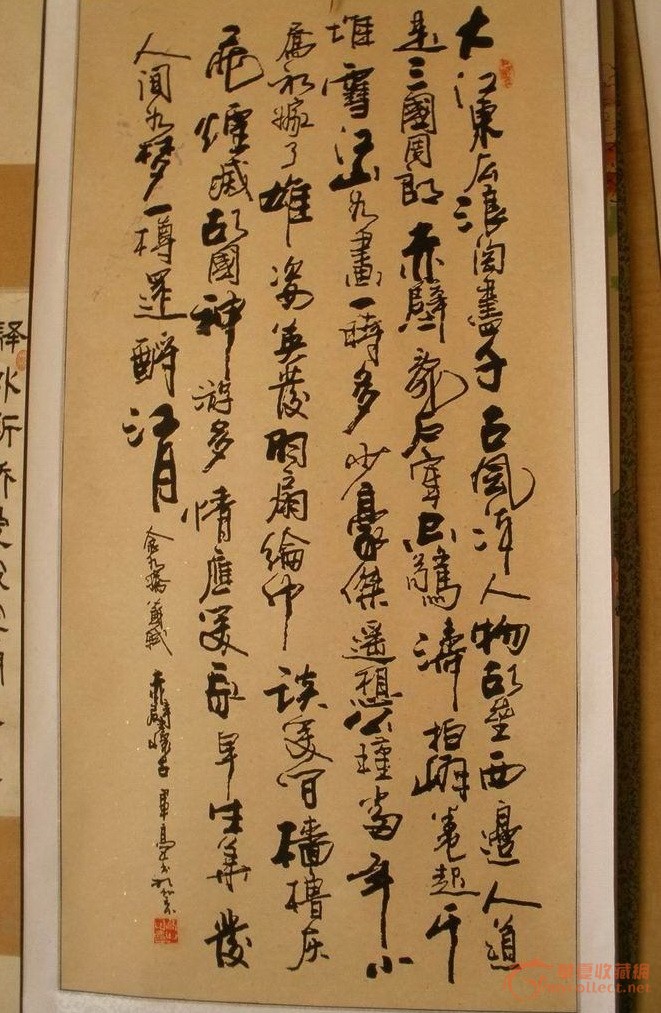 大江東去浪淘盡千古風流人物故壘西邊人道
是三國周郎赤壁亂石穿空驚濤拍岸卷起千
堆雪江山如畫一時多少豪傑遙想公瑾當年小
喬初嫁了雄姿英發羽扇綸巾談笑間檣櫓灰
飛煙滅故國神游多情應笑我早生華發
人間如夢一樽還酹江月
念奴嬌蘇軾赤壁懷古
華夏收藏網
collect.net